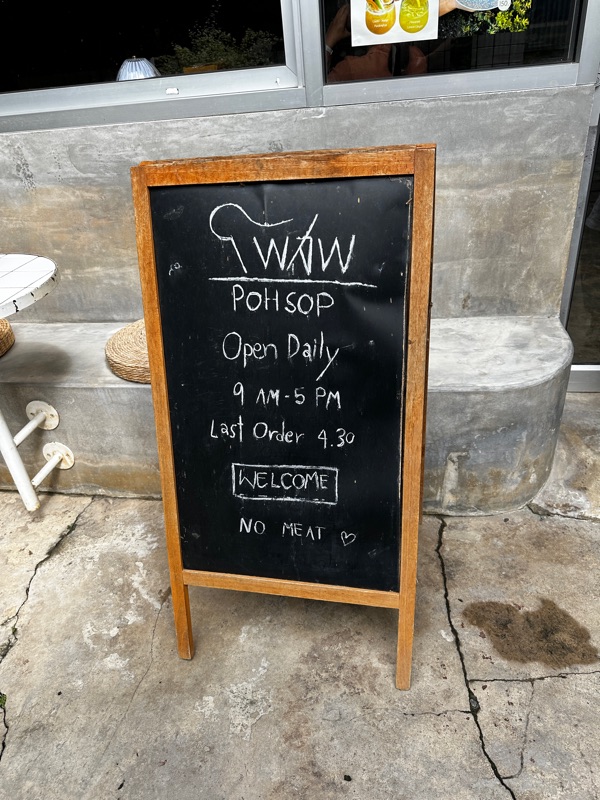 โพสพ
POHSOP
Open Daily
9 AM-5 PM
Last Order 4.30
WELCOME
NO MEAT ♡